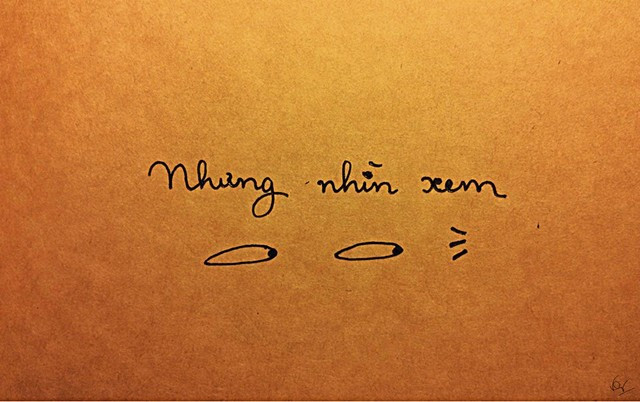 Nhưng nhìn xem